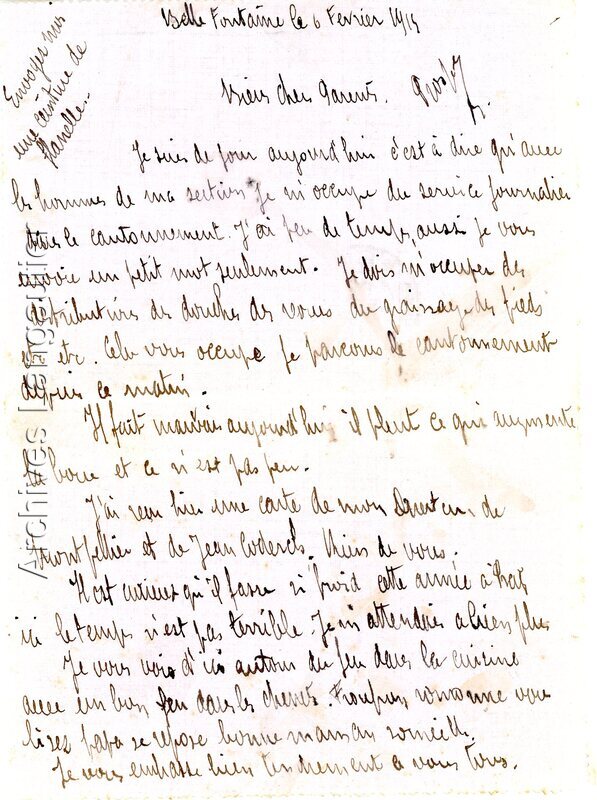 Belle Fontaine le 6 Fevrier 1915
Envoyez moi
une ceinture de
flanelle.
Biens chers Parents.
Je suis de jour aujourd'hui c'est à dire qu'avec
les hommes de ma section je m'occupe du service journalier
dans le cantonnement. J'ai peu de temps, aussi je vous
envoie un petit mot seulement. Je dois m'occuper des
distributions des douches des du graissage des pieds
etc. Cela vous occupe je parcours le cantonnement
depuis ce matin.
Il fait mauvais aujourd'hui il pleut ce qui augmente
la boue et ce n'est pas peu.
J'ai reçu hier une carte de mon Directeur de
Montpellier et de Jean Coderch. Rien de vous.
Il est curieux qu'il fasse si froid cette année à Prats
ici le temps n'est pas terrible. Je m'attendais a bien plus
Je vous vois d'ici autour du feu dans la cuisine
avec un bon feu dans les chenets. ronronne vous
lisez papa se repose bonne maman sommeille.
Je vous embrasse bien tendrement a vous tous.
Archives